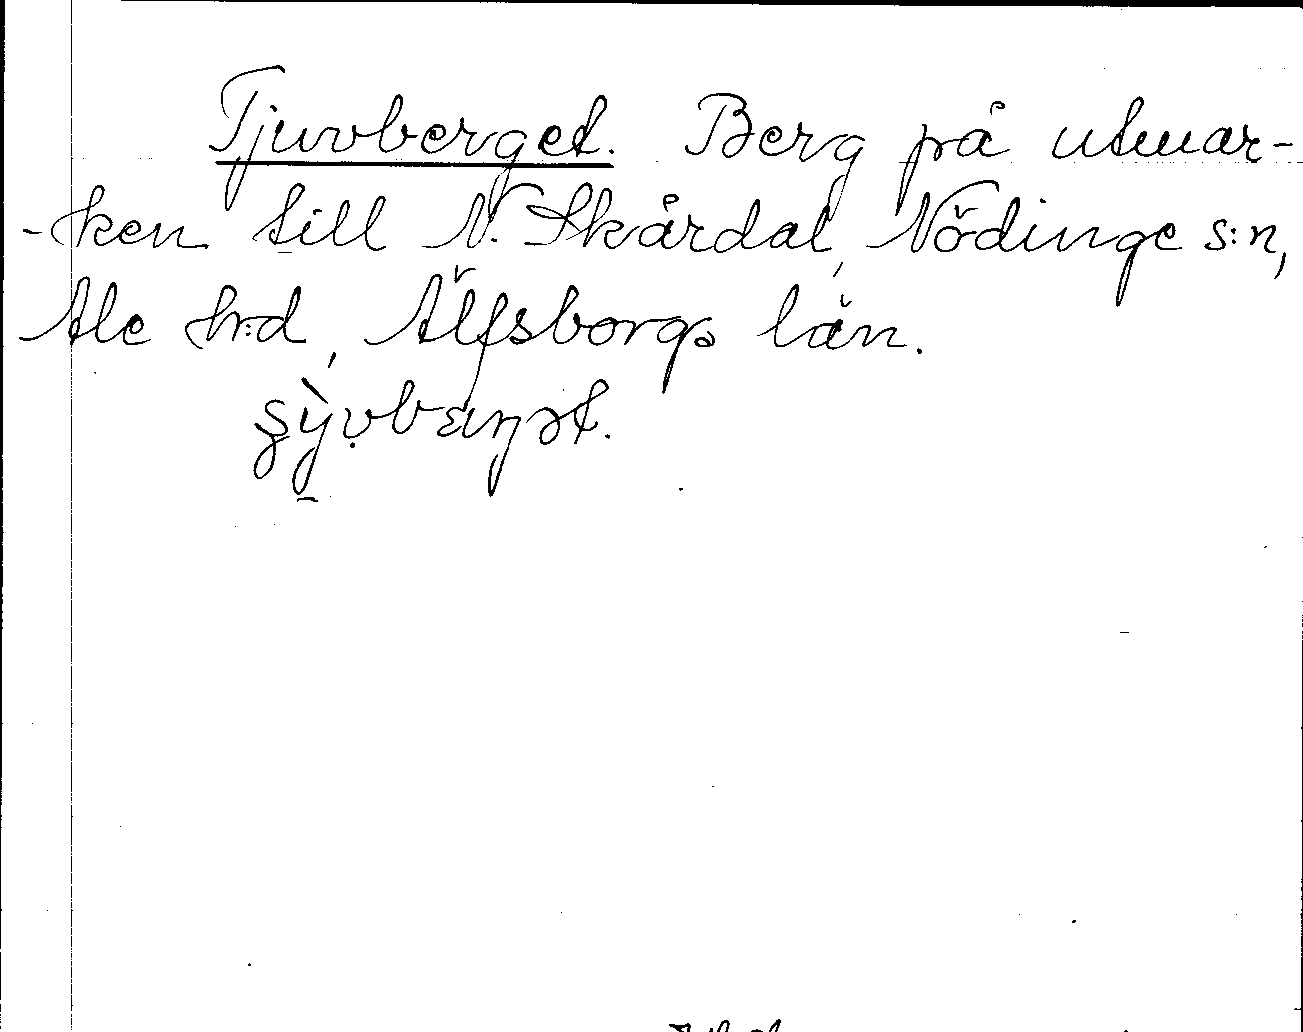 Tjuvberget. Berg på utmar-
-ken till N. Skårdal, Nödinge s:n,
Ale h:d, Älfsborgs län.